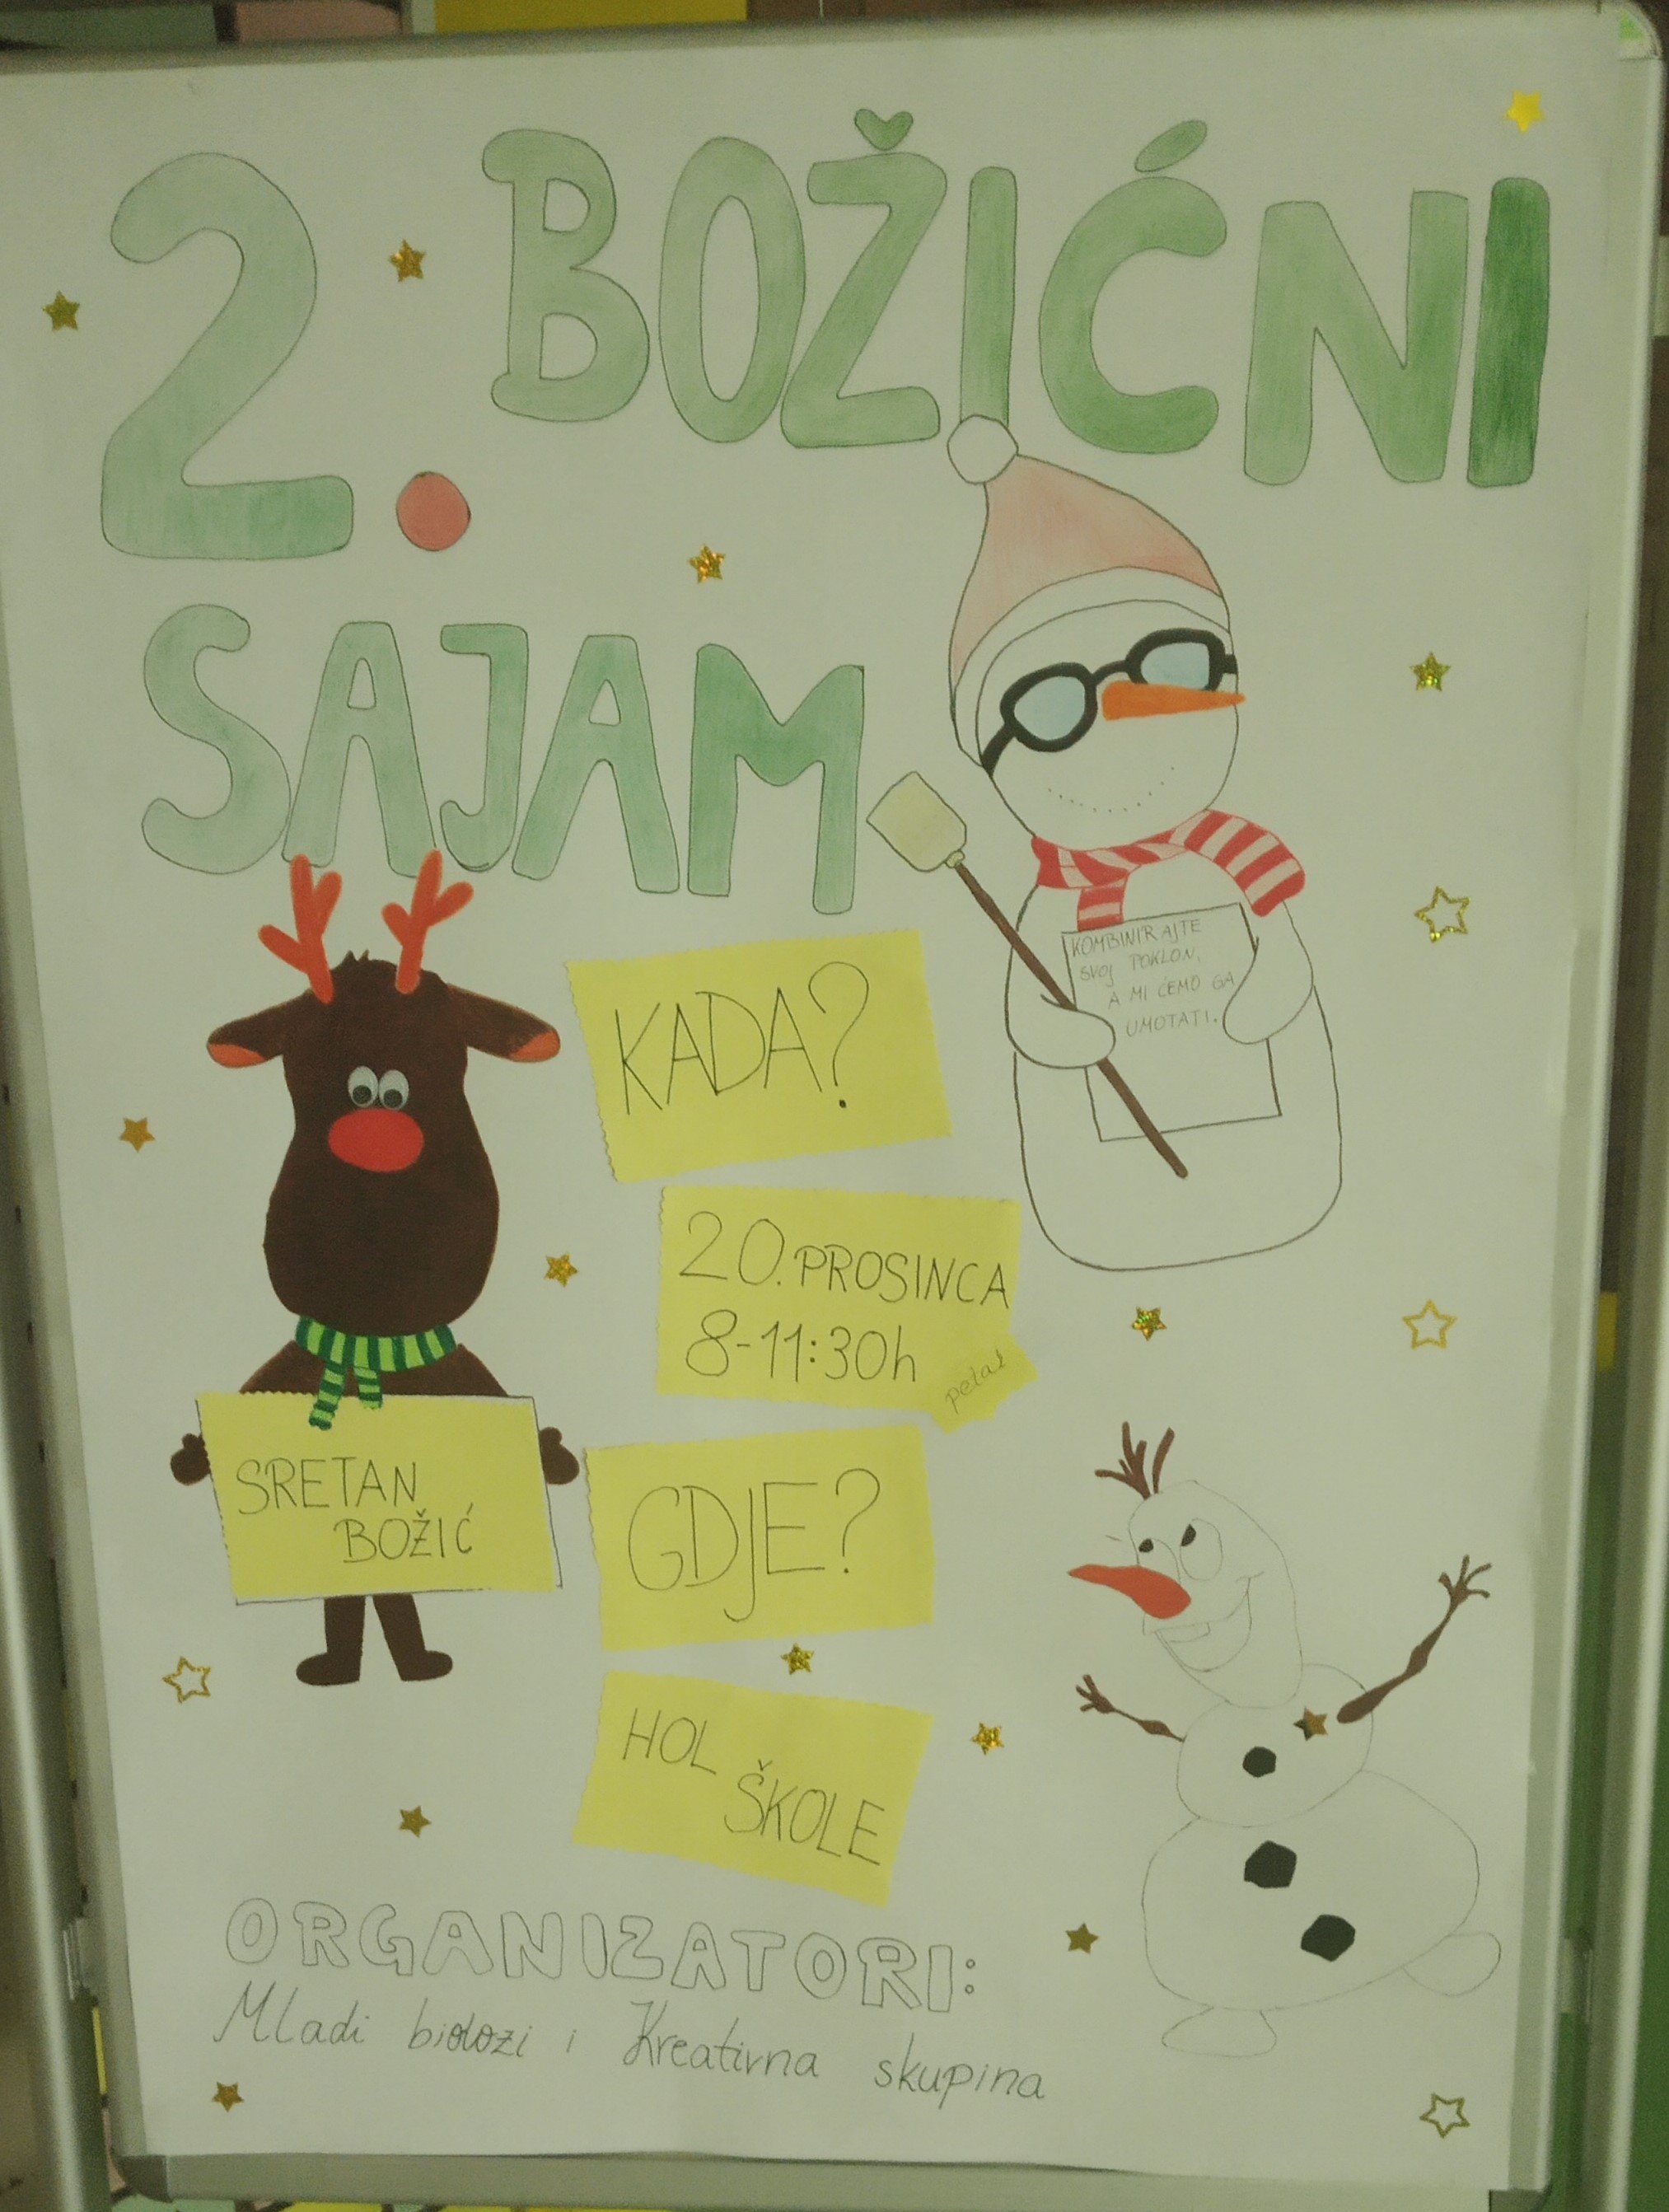 2. BOŽIĆNI
SAJAM
KOMBINIRAJTE
SVOJ POKLON,
A MI ĆEMO GA
UMOTATI.
KADA?
20. PROSINCA
8-11:30h
petak
SRETAN
BOŽIĆ
GDJE?
HOL
ŠKOLE
ORGANIZATORI:
Mladi biolozi i Kreativna skupina